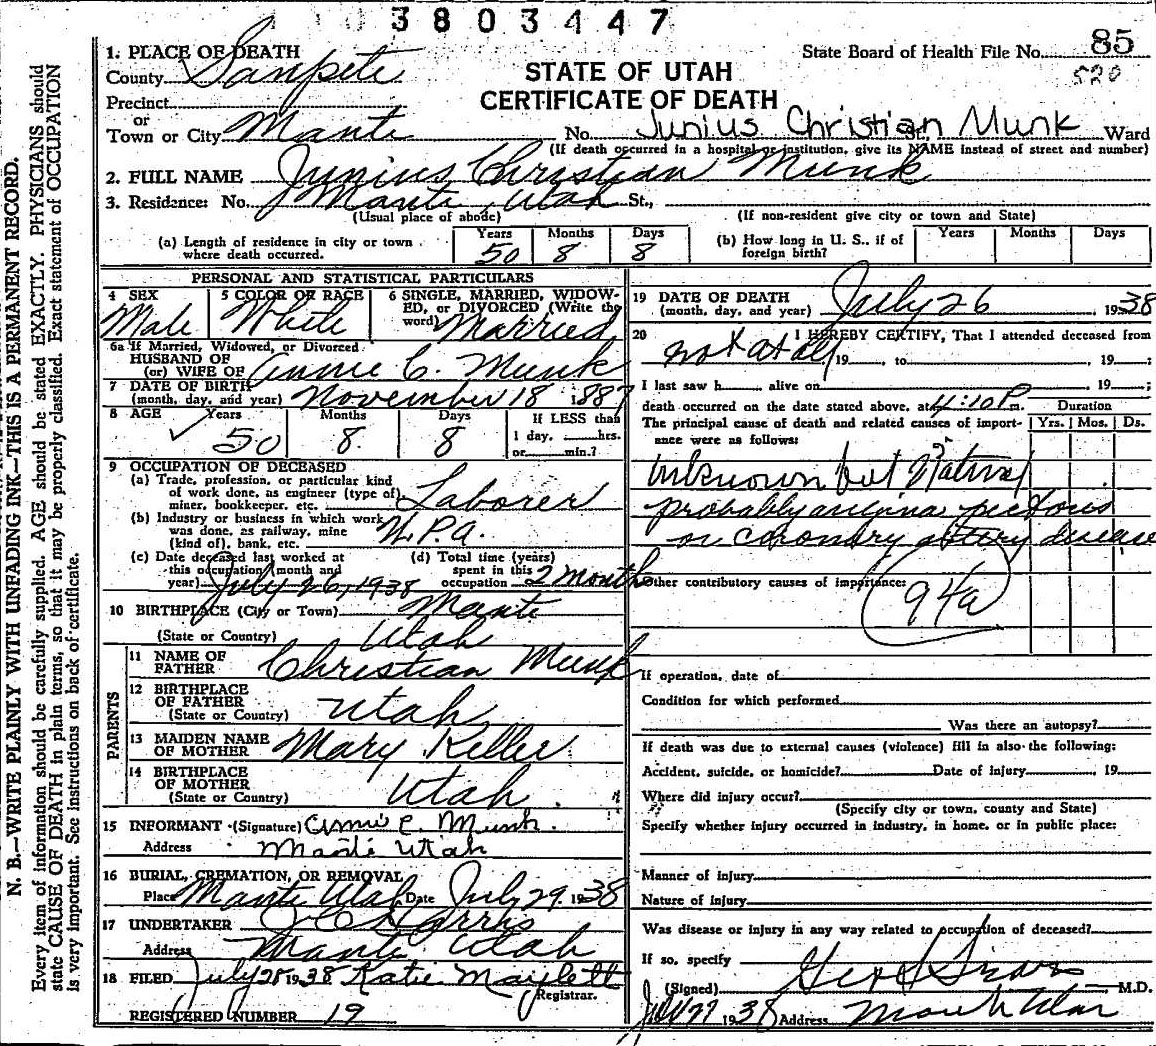 3803447
1. PLACE OF DEATH
State Board of Health File No. 85
County Sanpete
520
STATE OF UTAH
Precinct
CERTIFICATE OF DEATH
or
Town or City Manti No. Junius Christian Munk Ward
(If death occurred in a hospital or institution, give its NAME instead of street and number)
2. FULL NAME Junius Christian Munk
3. Residence: No. Manti, Utah St.,
(Usual place of abode) (If non-resident give city or town and State)
(a) Length of residence in city or town where death occurred. Years 50 Months 8 Days 8
(b) How long in U. S., if of foreign birth? Years Months Days
PERSONAL AND STATISTICAL PARTICULARS
4 SEX Male
5 COLOR OR RACE White
6 SINGLE, MARRIED, WIDOWED, OR DIVORCED (Write the word) Married
6a If Married, Widowed, or Divorced
HUSBAND OF
(or) WIFE OF Annie C. Munk
7 DATE OF BIRTH
(month, day, and year) November 18 1887
8 AGE Years 50 Months 8 Days 8 If LESS than
1 day, hrs.
or min.?
9 OCCUPATION OF DECEASED
(a) Trade, profession, or particular kind
of work done, as engineer (type of)
miner, bookkeeper, etc. Laborer
(b) Industry or business in which work
was done, as railway, mine
(kind of), bank, etc. W.P.A.
(c) Date deceased last worked at
this occupation (month and
year) July 26, 1938
(d) Total time (years)
spent in this
occupation 2 months
10 BIRTHPLACE (City or Town) Manti
(State or Country) Utah
PARENTS
11 NAME OF
FATHER Christian Munk
12 BIRTHPLACE
OF FATHER
(State or Country) Utah
13 MAIDEN NAME
OF MOTHER Mary Keller
14 BIRTHPLACE
OF MOTHER
(State or Country) Utah
15 INFORMANT (Signature) Annie C. Munk
Address Manti Utah
16 BURIAL, CREMATION, OR REMOVAL
Place Manti Utah Date July 29, 1938
17 UNDERTAKER Harris
Address Manti Utah
18 FILED July 28 1938 Katie Maylett
Registrar.
REGISTERED NUMBER 19
19 DATE OF DEATH
(month, day, and year) July 26, 1938
20 I HEREBY CERTIFY, That I attended deceased from
not at all 19 , to 19 ;
I last saw h alive on 19 ;
death occurred on the date stated above, at 4:10 P m.
Duration
The principal cause of death and related causes of importance were as follows: Yrs. Mos. Ds.
Unknown but Natural
probably angina pectoris
or coronary artery disease
Other contributory causes of importance:
94a
If operation, date of
Condition for which performed
Was there an autopsy?
If death was due to external causes (violence) fill in also the following:
Accident, suicide, or homicide? Date of injury , 19
Where did injury occur?
(Specify city or town, county and State)
Specify whether injury occurred in industry, in home, or in public place:
Manner of injury
Nature of injury
Was disease or injury in any way related to occupation of deceased?
If so, specify
(Signed) M.D.
1938 Address Manti Utah
N. B.—WRITE PLAINLY WITH UNFADING INK—THIS IS A PERMANENT RECORD.
Every item of information should be carefully supplied. AGE should be stated EXACTLY. PHYSICIANS should
state CAUSE OF DEATH in plain terms, so that it may be properly classified. Exact statement of OCCUPATION
is very important. See instructions on back of certificate.